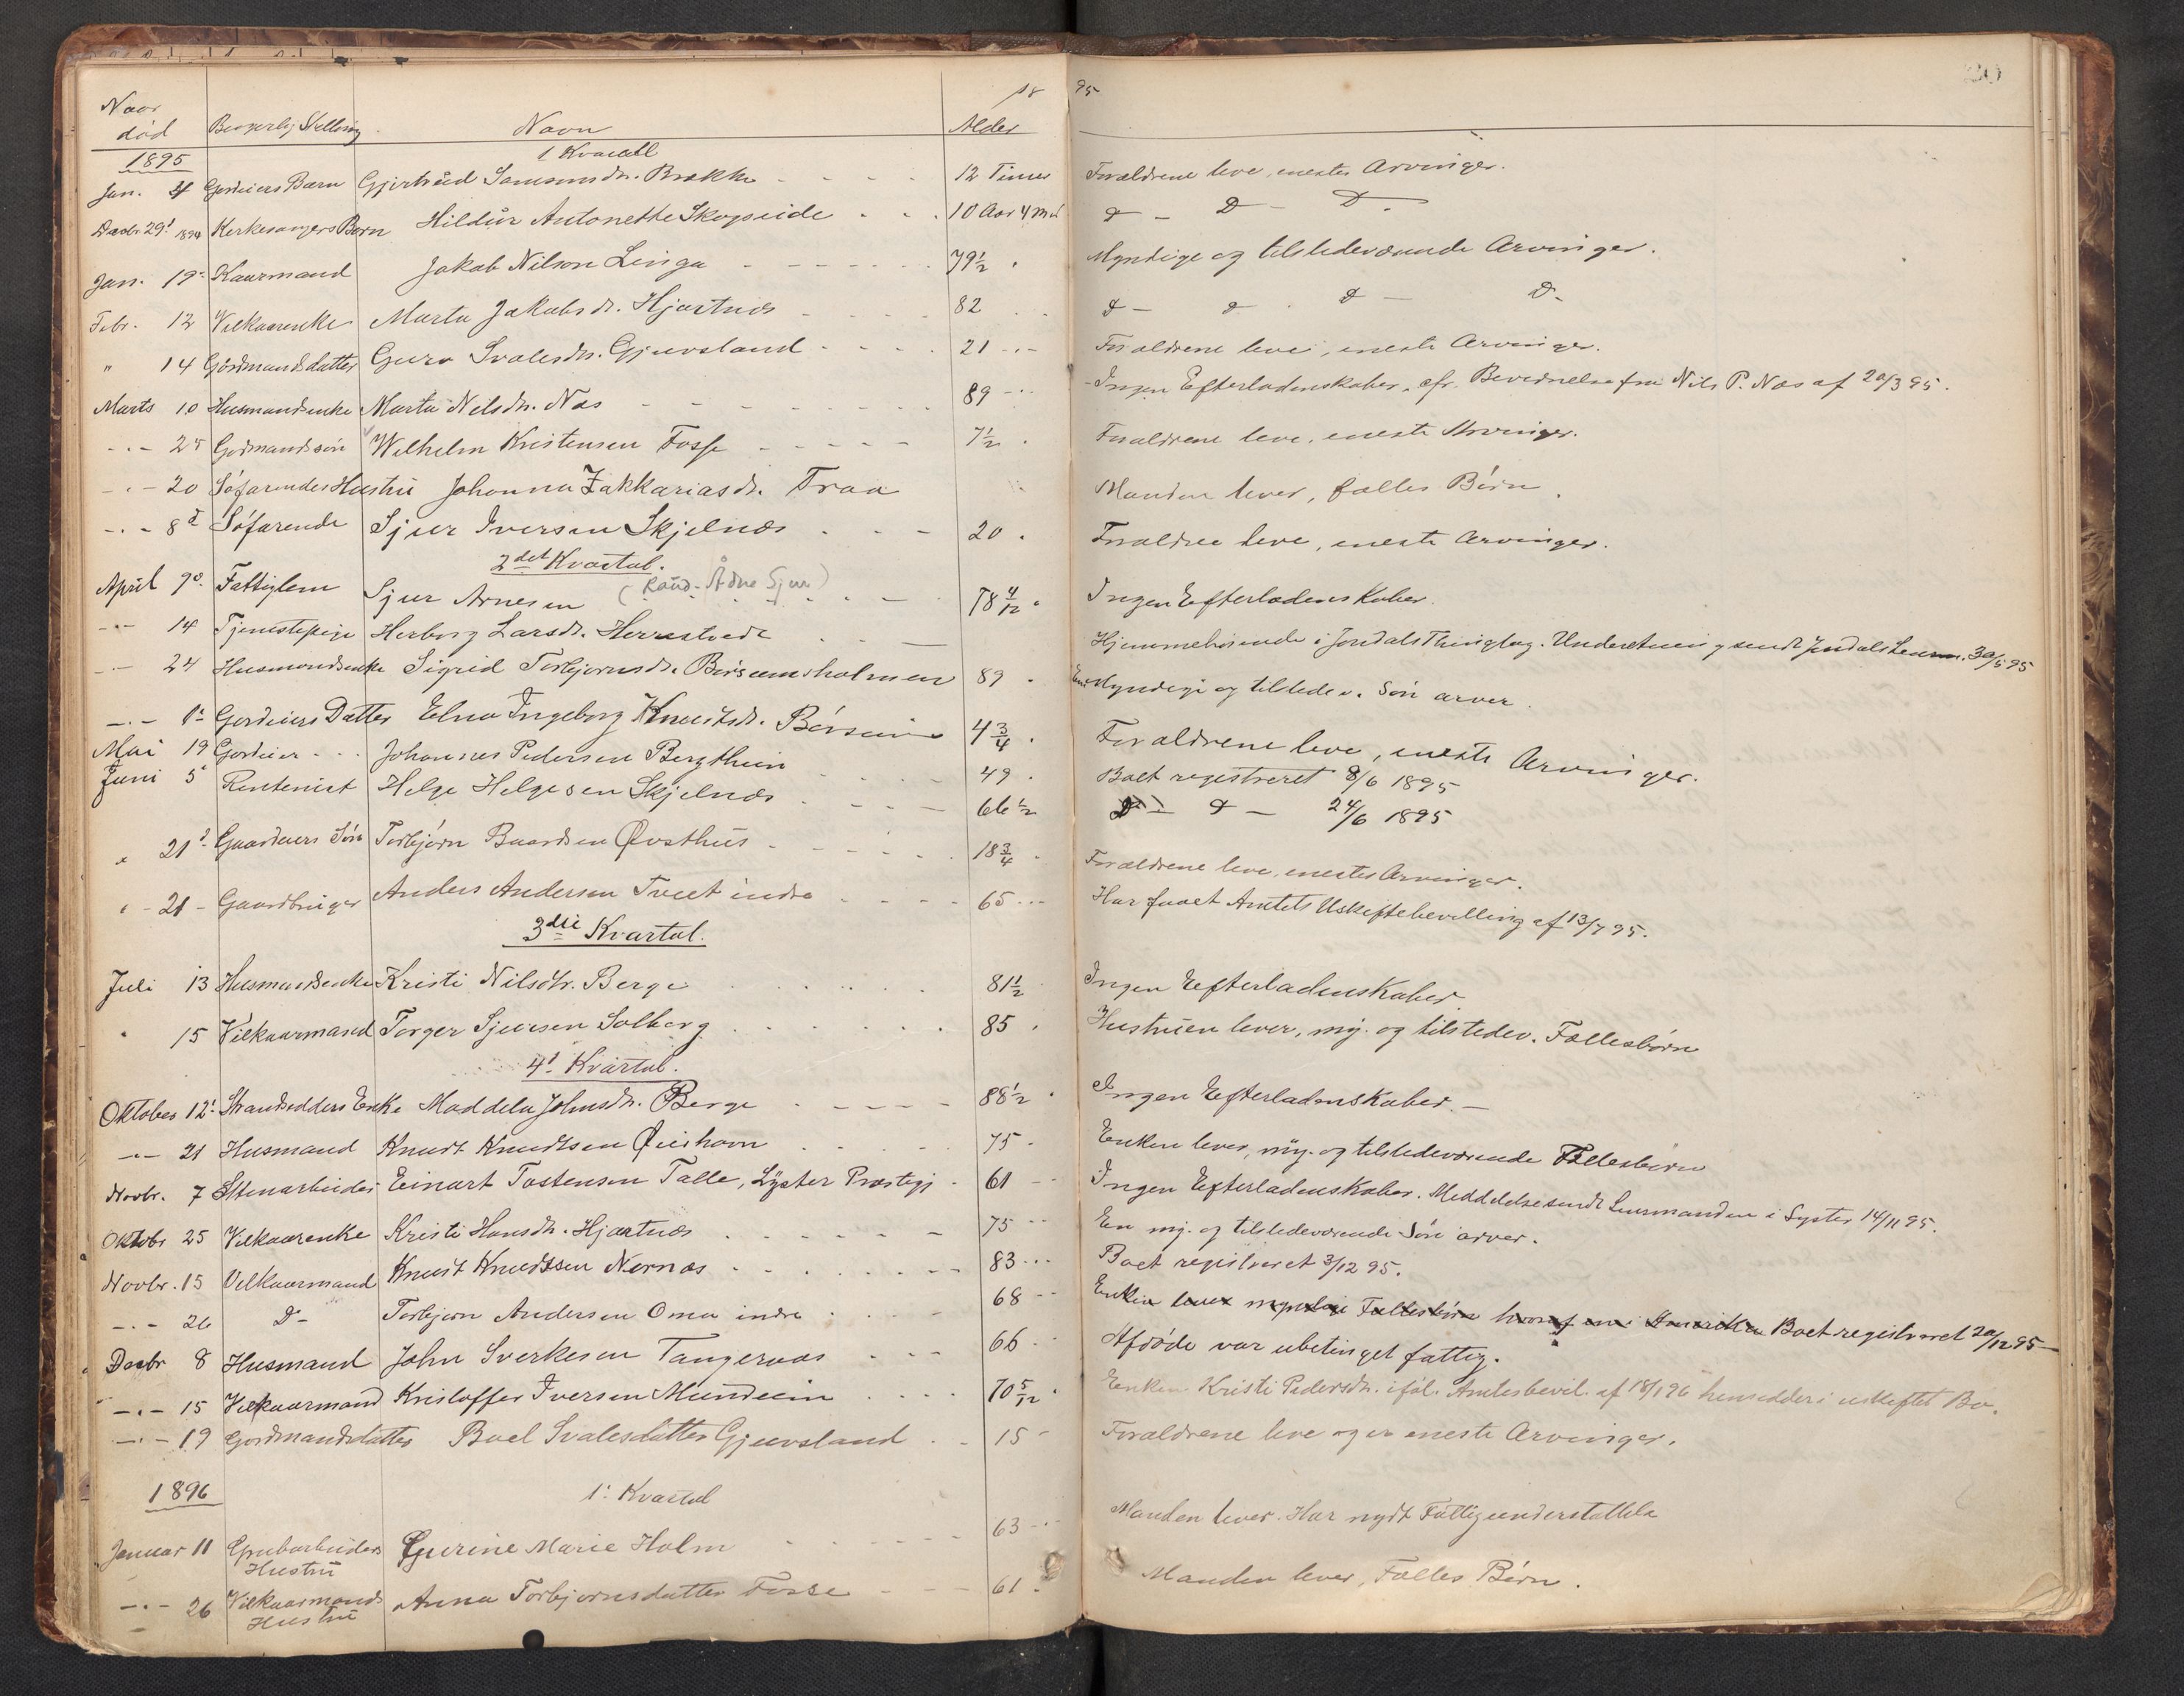 18 95
20
Naar død Borgerlig Stilling Navn Alder
1895 1 Kvartal
Jan. 4 Gordeiers Barn Gjertrud Samsonsdr. Brakke 12 Timer Forældrene leve, enestes Arvinger.
Decbr. 29' 1894 Kirkesangers Barn Hildur Antonette Skogseide 10 Aar 4 Md D - D - D -
Jan. 19 Kaarmand Jakob Nilson Linga 79 1/2 Myndige og tilstedeværende Arvinger.
Febr. 12 Vilkaarenke Marta Jakobsdr. Hjartnæs 82 D - D - D - D -
" 14 Gordmandsdatter Guro Svalesdr. Gjuvsland 21 Forældrene leve, eneste Arvinger.
Marts 10 Husmandsenke Marta Nilsdr. Næs 89 Ingen Efterladenskaber, cfr. Bevidnelse fra Nils P. Næs af 20/3 95.
-"- 25 Gordmandssøn Wilhelm Kristensen Fosse 7 1/2 Forældrene leve, eneste Arvinger.
-"- 20 Søfarendes Hustru Johanna Zakkariasdr. Traa Manden lever, fælles Børn.
-"- 8d Søfarende Sjur Iversen Skjelnæs 20 Forældre leve, eneste Arvinger.
2det Kvartal.
April 9' Fattiglem Sjur Arnesen (Raud- Ådne Sjur) 78 4/12 Ingen Efterladenskaber.
-"- 14 Tjenestepige Herborg Larsdr. Herrestvedt Hjemmehørende i Jondals Thinglag. Underetning sendt Jondals Lensm. 30/5 95
-"- 24 Husmandsenke Sigrid Torbjørnsdr. Børsemsholmen 89 En Myndige og tilstedev. Søn arver.
-"- 1' Gordeiers Datter Elna Ingeborg Knutsdr. Børseim 4 3/4 Forældrene leve, eneste Arvinger.
Mai 19 Gordeier Johannes Pedersen Bergthun 49 Boet registreret 8/6 1895
Juni 5' Rentenist Helge Helgesen Skjelnæs 66 1/2 D - D - 24/6 1895
" 21' Gaardeiers Søn Torbjørn Baardsen Øvsthus 18 3/4 Forældrene leve, enestes Arvinger.
" - 21 - Gaardbruger Anders Andersen Tveit indre 65 Har faaet Amtets Uskiftebevilling af 13/7 95.
3die Kvartal.
Juli 13 Husmandsenke Kristi Nilsdtr. Berge 81 1/2 Ingen Efterladenskaber
" 15 Vilkaarmand Torger Sjursen Solberg 85 Hustruen lever, mý. og tilstedev. Fællesbørn
4' Kvartal.
Oktober 12' Strandsidders Enke Maddela Johnsdr. Berge 88 1/2 Ingen Efterladenskaber. —
-"- 21 Husmand Knudt Knudtsen Øiehavn 75 Enken lever, mý. og tilstedeværende Fællesbørn
Novbr. 7 Stenarbeider Einart Tostensen Talle, Lyster Præstegj 61 Ingen Efterladenskaber. Meddelelse sendt Lensmanden i Lyster 14/11 95.
Oktobr 25 Vilkaarenke Kristi Hansdr. Hjartnæs 75 En mý. og tilstedeværende Søn arver.
Novbr. 15 Vilkaarmand Knudt Knudtsen Nernæs 83 Boet registreret 3/12 95.
-"- 26 D- Torbjørn Andersen Oma indre 68 Enken lever myndige Fællesbørn hvoraf en i Amerika Boet registreret 20/12 95
Decbr 8 Husmand John Sverkesen Tangeraas 66 Afdøde var ubetinget fattig.
-"- 15 Vilkaarmand Kristoffer Iversen Mundeim 70 5/12 Enken Kristi Pedersdr. iføl. Amtesbevil. af 18/1 96 hensidder i uskiftet Bo.
-"- 19 Gordmandsdatter Boel Svalesdatter Gjeuvsland 15 Forældrene leve og er eneste Arvinger.
1896 1' Kvartal
Januar 11 Grubarbeiders Hustru Gurine Marie Holm 63 Manden lever. Har nydt Fattigunderstøttelse
-"- 26 Vilkaarmands Hustru Anna Torbjørnsdatter Fosse 61 Manden lever, Fælles Børn.